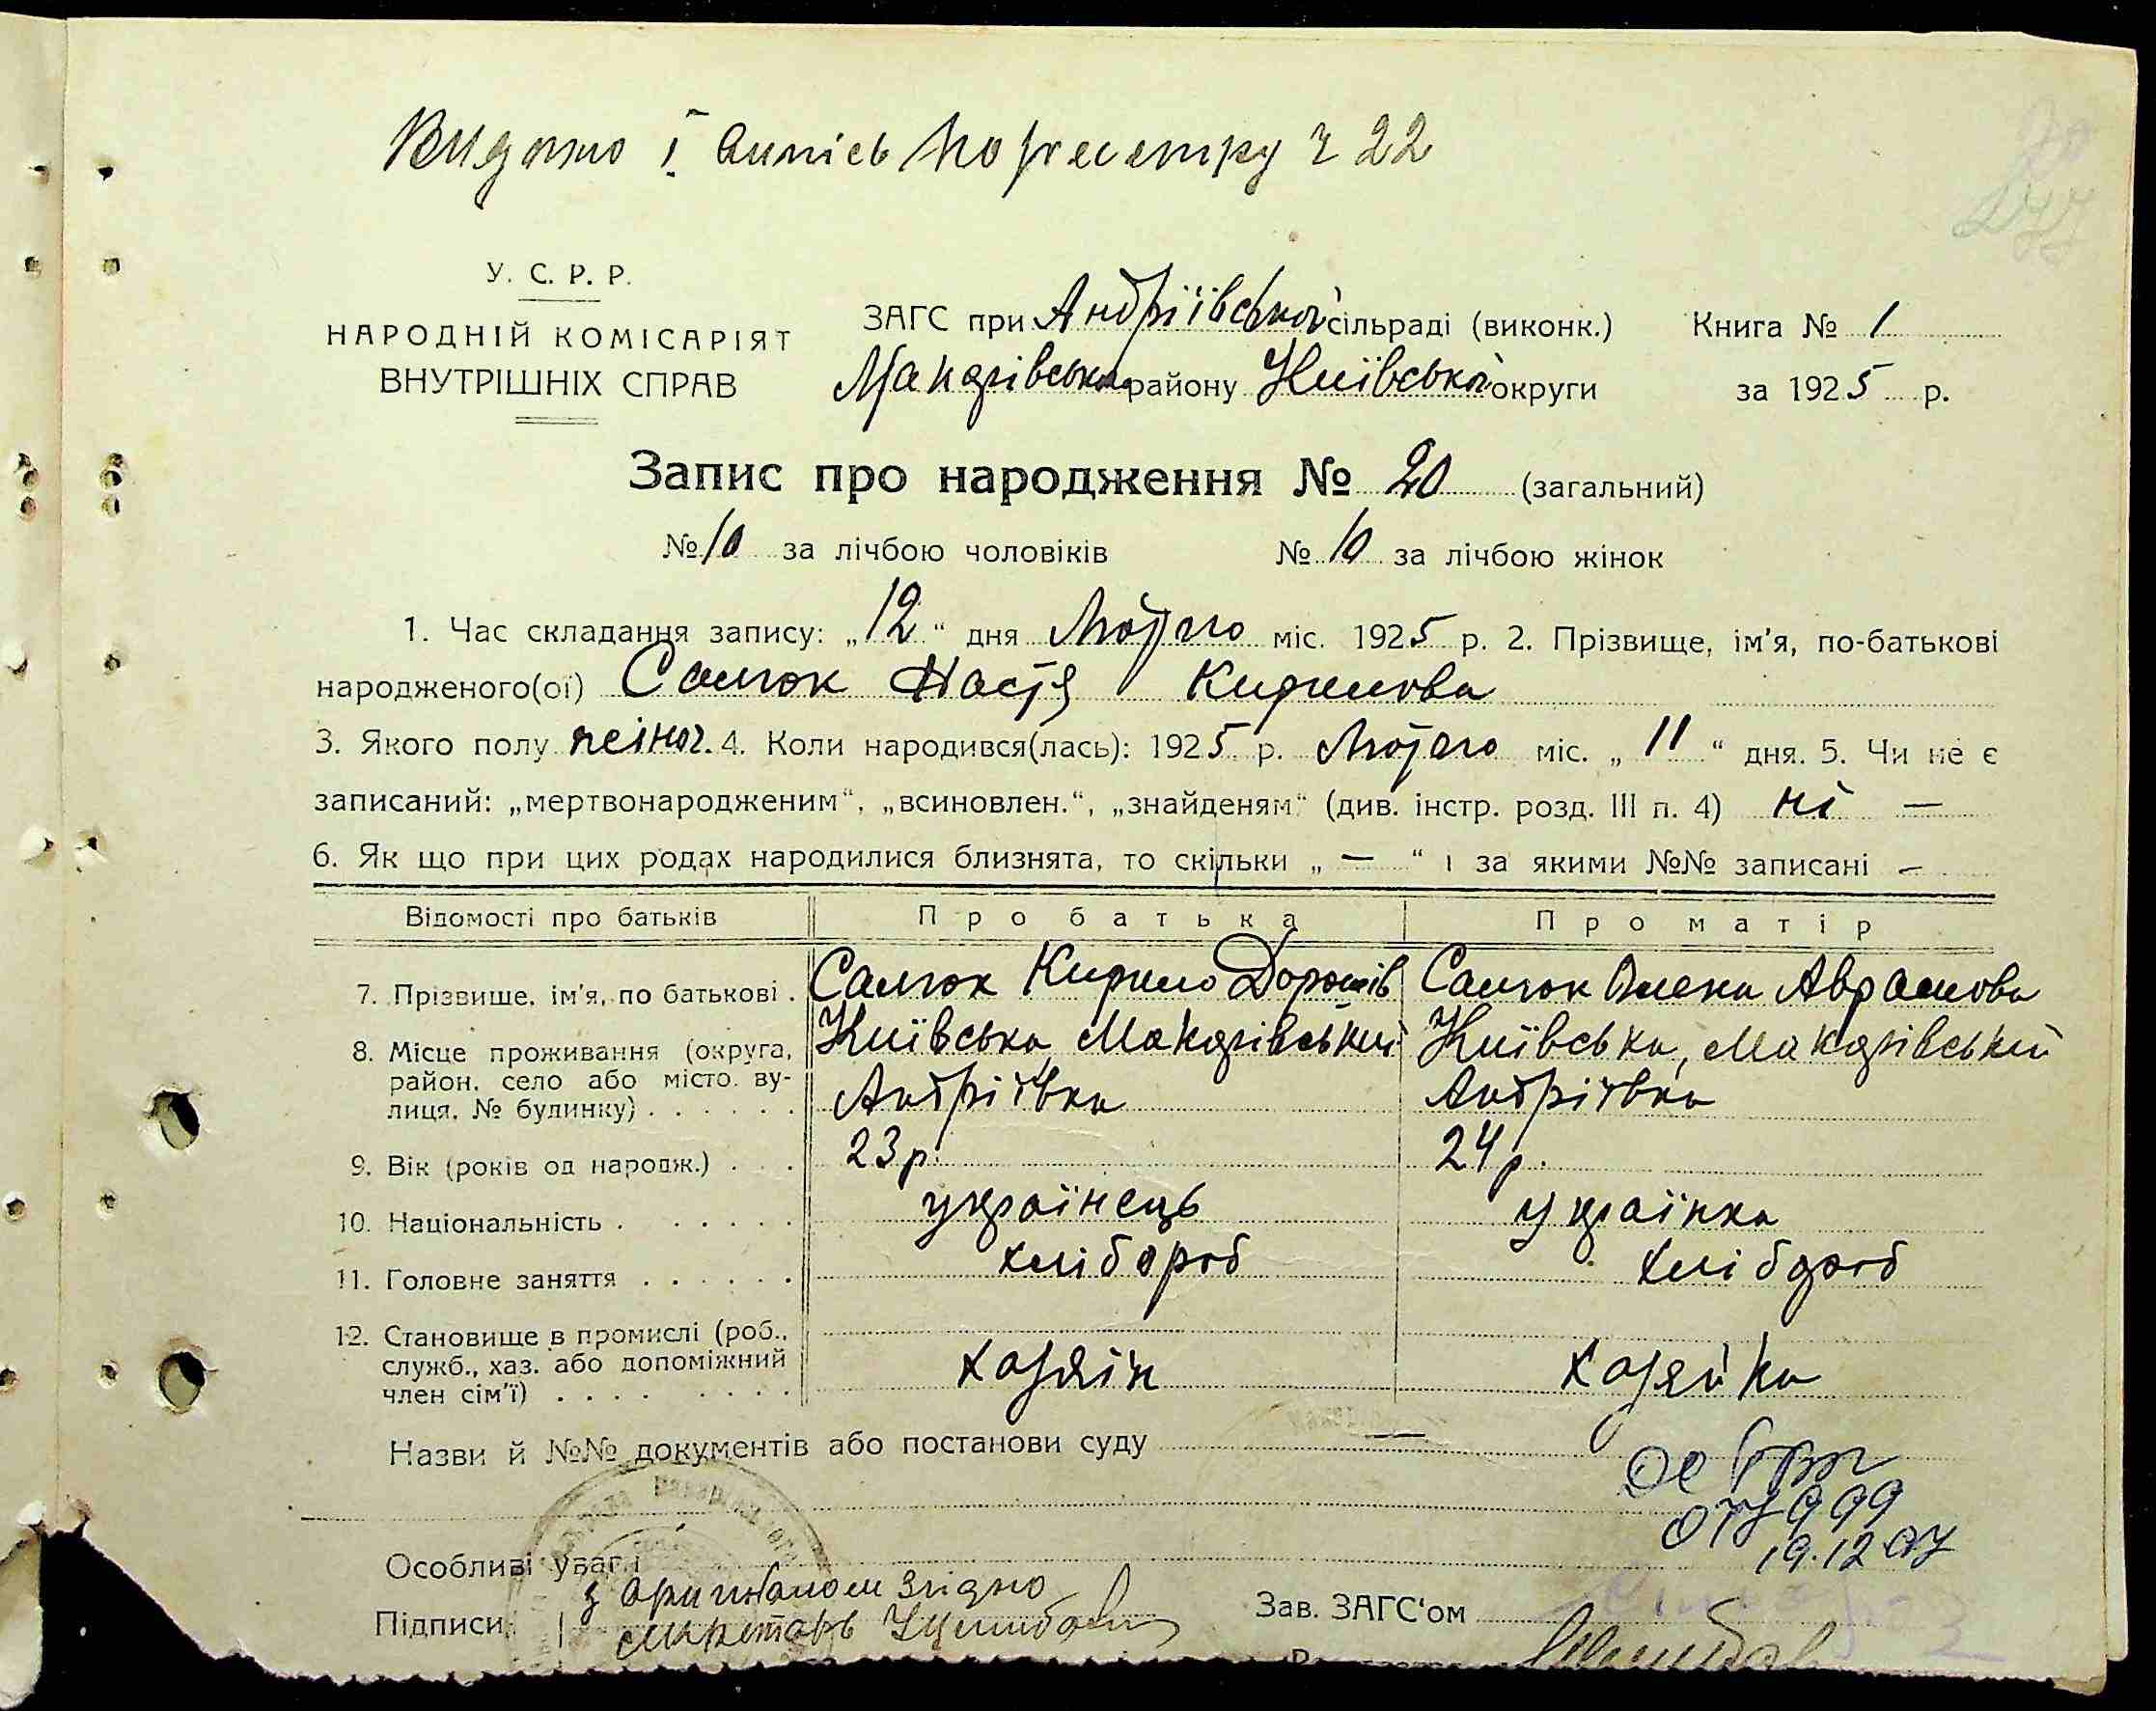 Видано І Випись По реестру ч 22
У. С. Р. Р.
НАРОДНІЙ КОМІСАРІЯТ
ВНУТРІШНІХ СПРАВ
ЗАГС при Андріївській сільраді (виконк.) Книга № 1
Макарівського району Київської округи за 1925 р.
Запис про народження № 20 (загальний)
№ 10 за лічбою чоловіків № 10 за лічбою жінок
1. Час складання запису: „12“ дня Лютого міс. 1925 р. 2. Прізвище, ім'я, по-батькові
народженого(ої) Самюк Настя Кирилова
3. Якого полу жіноч. 4. Коли народився(лась): 1925 р. Лютого міс. „11“ дня. 5. Чи не є
записаний: „мертвонародженим“, „всиновлен.“, „знайденям“ (див. інстр. розд. III п. 4) ні —
6. Як що при цих родах народилися близнята, то скільки „ — “ і за якими №№ записані —
Відомості про батьків Про батька Про матір
7. Прізвище, ім'я, по батькові . Самюк Кирило Самюк Олена Аврамова
8. Місце проживання (округа, район, село або місто, вулиця, № будинку) . . . . . . Київська, Макарівський Андріївка Київська, Макарівський Андріївка
9. Вік (років од народж.) . . . 23 р. 24 р.
10. Національність . . . . . . українець українка
11. Головне заняття . . . . . . хлібороб хлібороб
12. Становище в промислі (роб., служб., хаз. або допоміжний член сім'ї) . . . . . . . . хазяїн хазяйка
Назви й №№ документів або постанови суду —
19.12
Особливі уваги
з оригіналом згідно
Підписи: секретарь
Зав. ЗАГС'ом